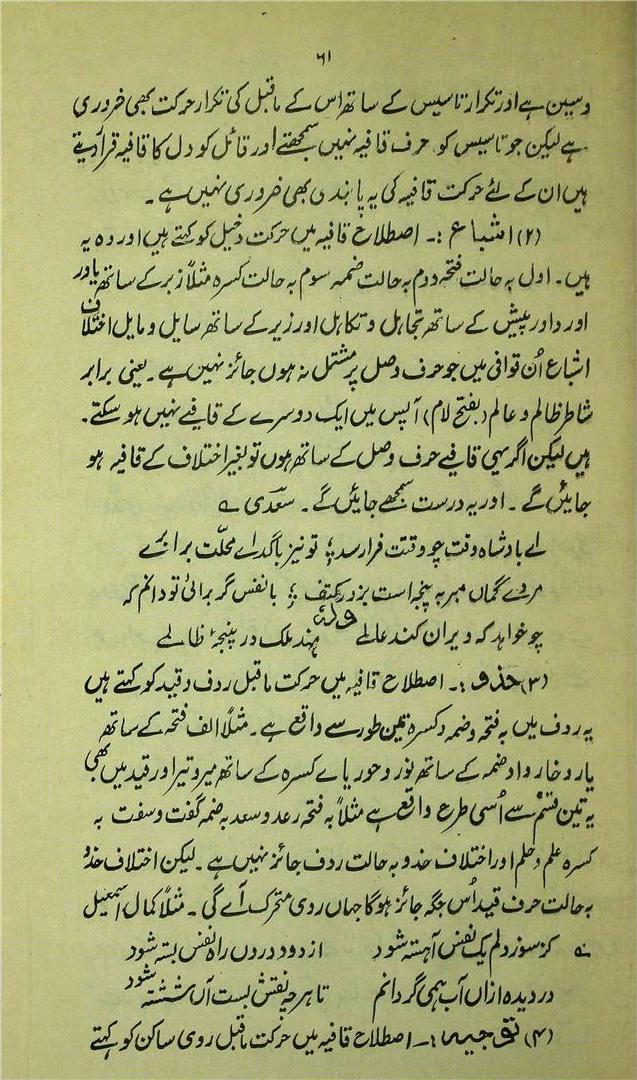 ٦١
وسین ہے اور تکرار تاسیس کے ساتھ اس کے ماقبل کی تکرار حرکت بھی ضروری
ہے لیکن جو تاسیس کو حرف قافیہ نہیں سمجھتے اور قائل کو دل کا قافیہ قرار دیتے
ہیں ان کے لئے حرکت قافیہ کی یہ پابندی بھی ضروری نہیں ہے ۔
(۲) اشباع :۔ اصطلاح قافیہ میں حرکت دخیل کو کہتے ہیں اور وہ یہ
ہیں ۔ اول بہ حالت فتحہ دوم بہ حالت ضمہ سوم بہ حالت کسرہ مثلاً زبر کے ساتھ یاور
اور داور پیش کے ساتھ تجاہل و تکاہل اور زیر کے ساتھ سایل و مایل اختلاف
اشباع اُن قوافی میں جو حرف وصل پر مشتمل نہ ہوں جائز نہیں ہے ۔ یعنی برابر
شاطر ظالم و عالم (بفتح لام) آپس میں ایک دوسرے کے قافیے نہیں ہو سکتے۔
ہیں لیکن اگر یہی قافیے حرف وصل کے ساتھ ہوں تو بغیر اختلاف کے قافیہ ہو
جائیں گے ۔ اور یہ درست سمجھے جائیں گے ۔ سعدی ؎
اے بادشاہ وقت چو وقتت فرا رسد ؛ تو نیز با گدائے محلّت برابرے
مردے گماں مبر بہ پنجہ است بزور کتف ؛ با نفس گر برائی تو دانم کہ
چو خواہد کہ ویران کند عالمے ولہٗ نہد ملک در پنجۂ ظالمے
(۳) حذو :۔ اصطلاح قافیہ میں حرکت ماقبل ردف و قید کو کہتے ہیں
یہ ردف میں بہ فتحہ و ضمہ و کسرہ تین طور سے واقع ہے ۔ مثلاً الف فتحہ کے ساتھ
یار و خار واو ضمہ کے ساتھ نور و حور یائے کسرہ کے ساتھ میر و تیر اور قید میں بھی
یہ تین قسم سے اُسی طرح واقع ہے مثلاً بہ فتحہ رعد و سعد بہ ضمہ گفت و سفت بہ
کسرہ علم و حلم اور اختلاف حذو بہ حالت ردف جائز نہیں ہے ۔ لیکن اختلاف حذو
بہ حالت حرف قید اُس جگہ جائز ہوگا جہاں روی متحرک آے گی ۔ مثلاً کمال اسمٰعیل
؎ کز سوز دلم یک نفس آہستہ شود از دود دروں راہ نفس بستہ شود
در دیدہ ازاں آب ہمی گردانم تا ہرچہ نقش بست آں شستہ شود
(۴) توجیہ :۔ اصطلاح قافیہ میں حرکت ماقبل روی ساکن کو کہتے